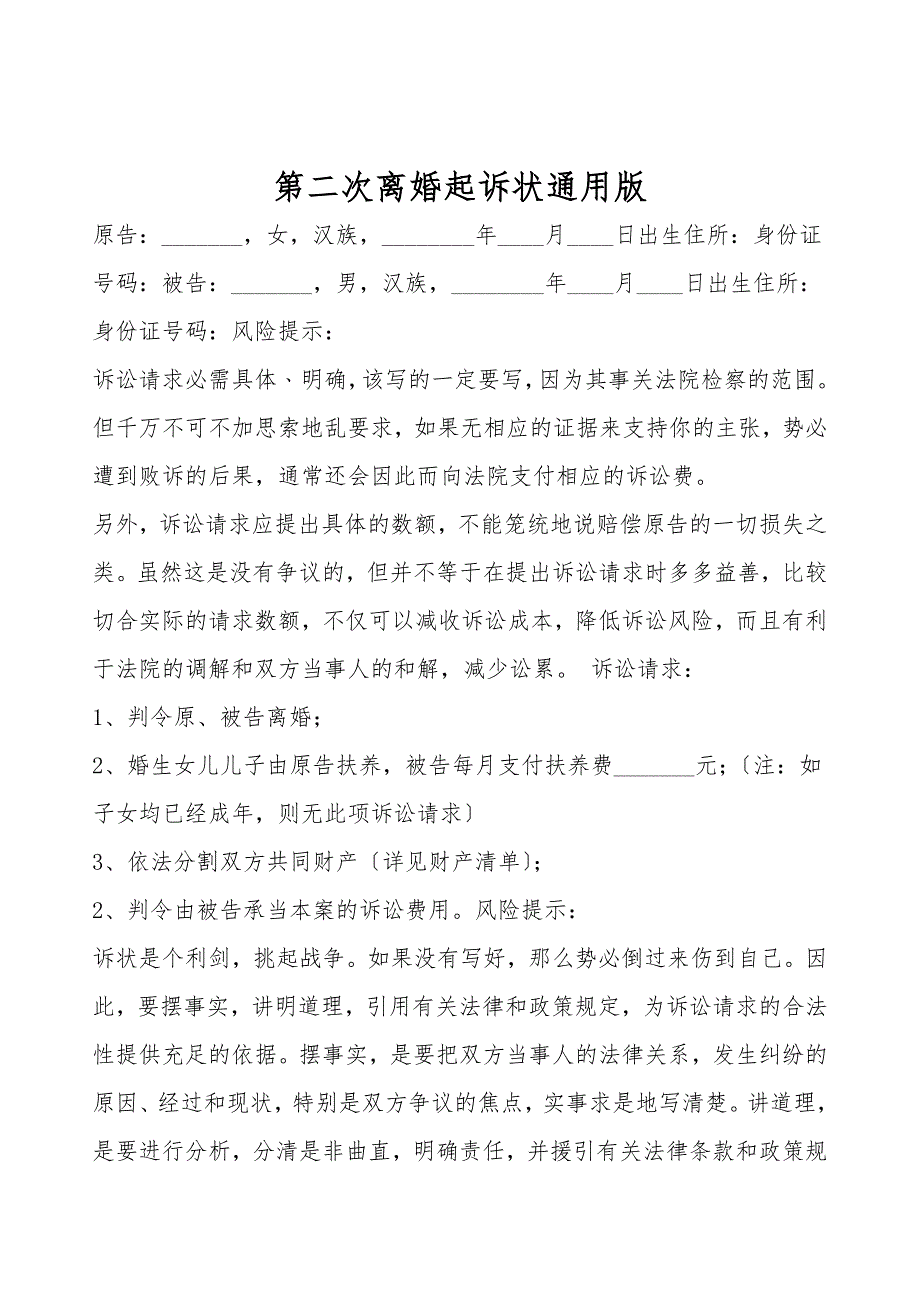 第二次离婚起诉状通用版
原告：_______，女，汉族，________年____月____日出生住所：身份证
号码：被告：_______，男，汉族，________年____月____日出生住所：
身份证号码：风险提示：
诉讼请求必需具体、明确，该写的一定要写，因为其事关法院检察的范围。
但千万不可不加思索地乱要求，如果无相应的证据来支持你的主张，势必
遭到败诉的后果，通常还会因此而向法院支付相应的诉讼费。
另外，诉讼请求应提出具体的数额，不能笼统地说赔偿原告的一切损失之
类。虽然这是没有争议的，但并不等于在提出诉讼请求时多多益善，比较
切合实际的请求数额，不仅可以减收诉讼成本，降低诉讼风险，而且有利
于法院的调解和双方当事人的和解，减少讼累。 诉讼请求：
1、判令原、被告离婚；
2、婚生女儿儿子由原告扶养，被告每月支付扶养费_______元；〔注：如
子女均已经成年，则无此项诉讼请求〕
3、依法分割双方共同财产〔详见财产清单〕；
2、判令由被告承当本案的诉讼费用。风险提示：
诉状是个利剑，挑起战争。如果没有写好，那么势必倒过来伤到自己。因
此，要摆事实，讲明道理，引用有关法律和政策规定，为诉讼请求的合法
性提供充足的依据。摆事实，是要把双方当事人的法律关系，发生纠纷的
原因、经过和现状，特别是双方争议的焦点，实事求是地写清楚。讲道理，
是要进行分析，分清是非曲直，明确责任，并援引有关法律条款和政策规